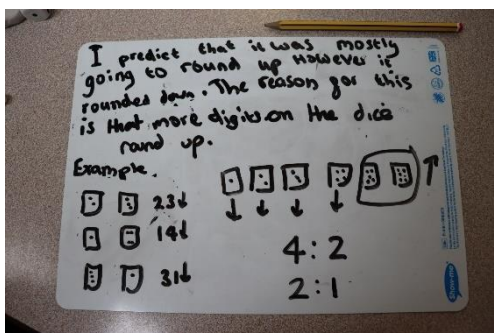 I predict that it was mostly
going to round up However it
rounded down. The reason for this
is that more digits on the dice
round up.
Example.
23↓
14↓
31↓
↓ ↓ ↓ ↓ ↑
4:2
2:1
Show-me